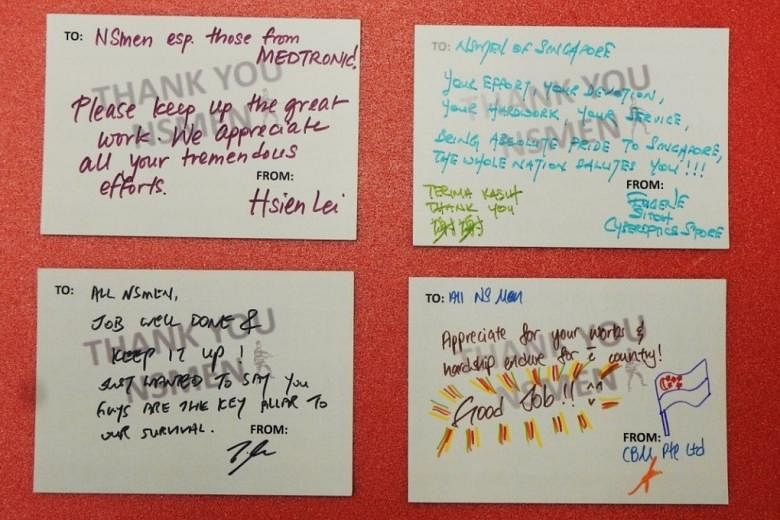 TO: NSmen esp. those from
MEDTRONIC!
THANK YOU
NSMEN
Please keep up the great
work. We appreciate
all your tremendous
efforts.
FROM:
Hsien Lei
TO: NSMEN OF SINGAPORE
THANK YOU
NSMEN
YOUR EFFORT, YOUR DEVOTION,
YOUR HARDWORK, YOUR SERVICE,
BRING ABSOLUTE PRIDE TO SINGAPORE,
THE WHOLE NATION SALUTES YOU!!!
TERIMA KASIH
THANK YOU
FROM:
EUGENE
SITOH
TO: ALL NSMEN,
THANK YOU
NSMEN
JOB WELL DONE &
KEEP IT UP!
JUST WANTED TO SAY YOU
GUYS ARE THE KEY PILLAR TO
OUR SURVIVAL.
FROM:
TO: All NS Men
THANK YOU
NSMEN
Appreciate for your works &
hardship endure for country!
Good Job!! ^^
FROM:
CBM Pte Ltd